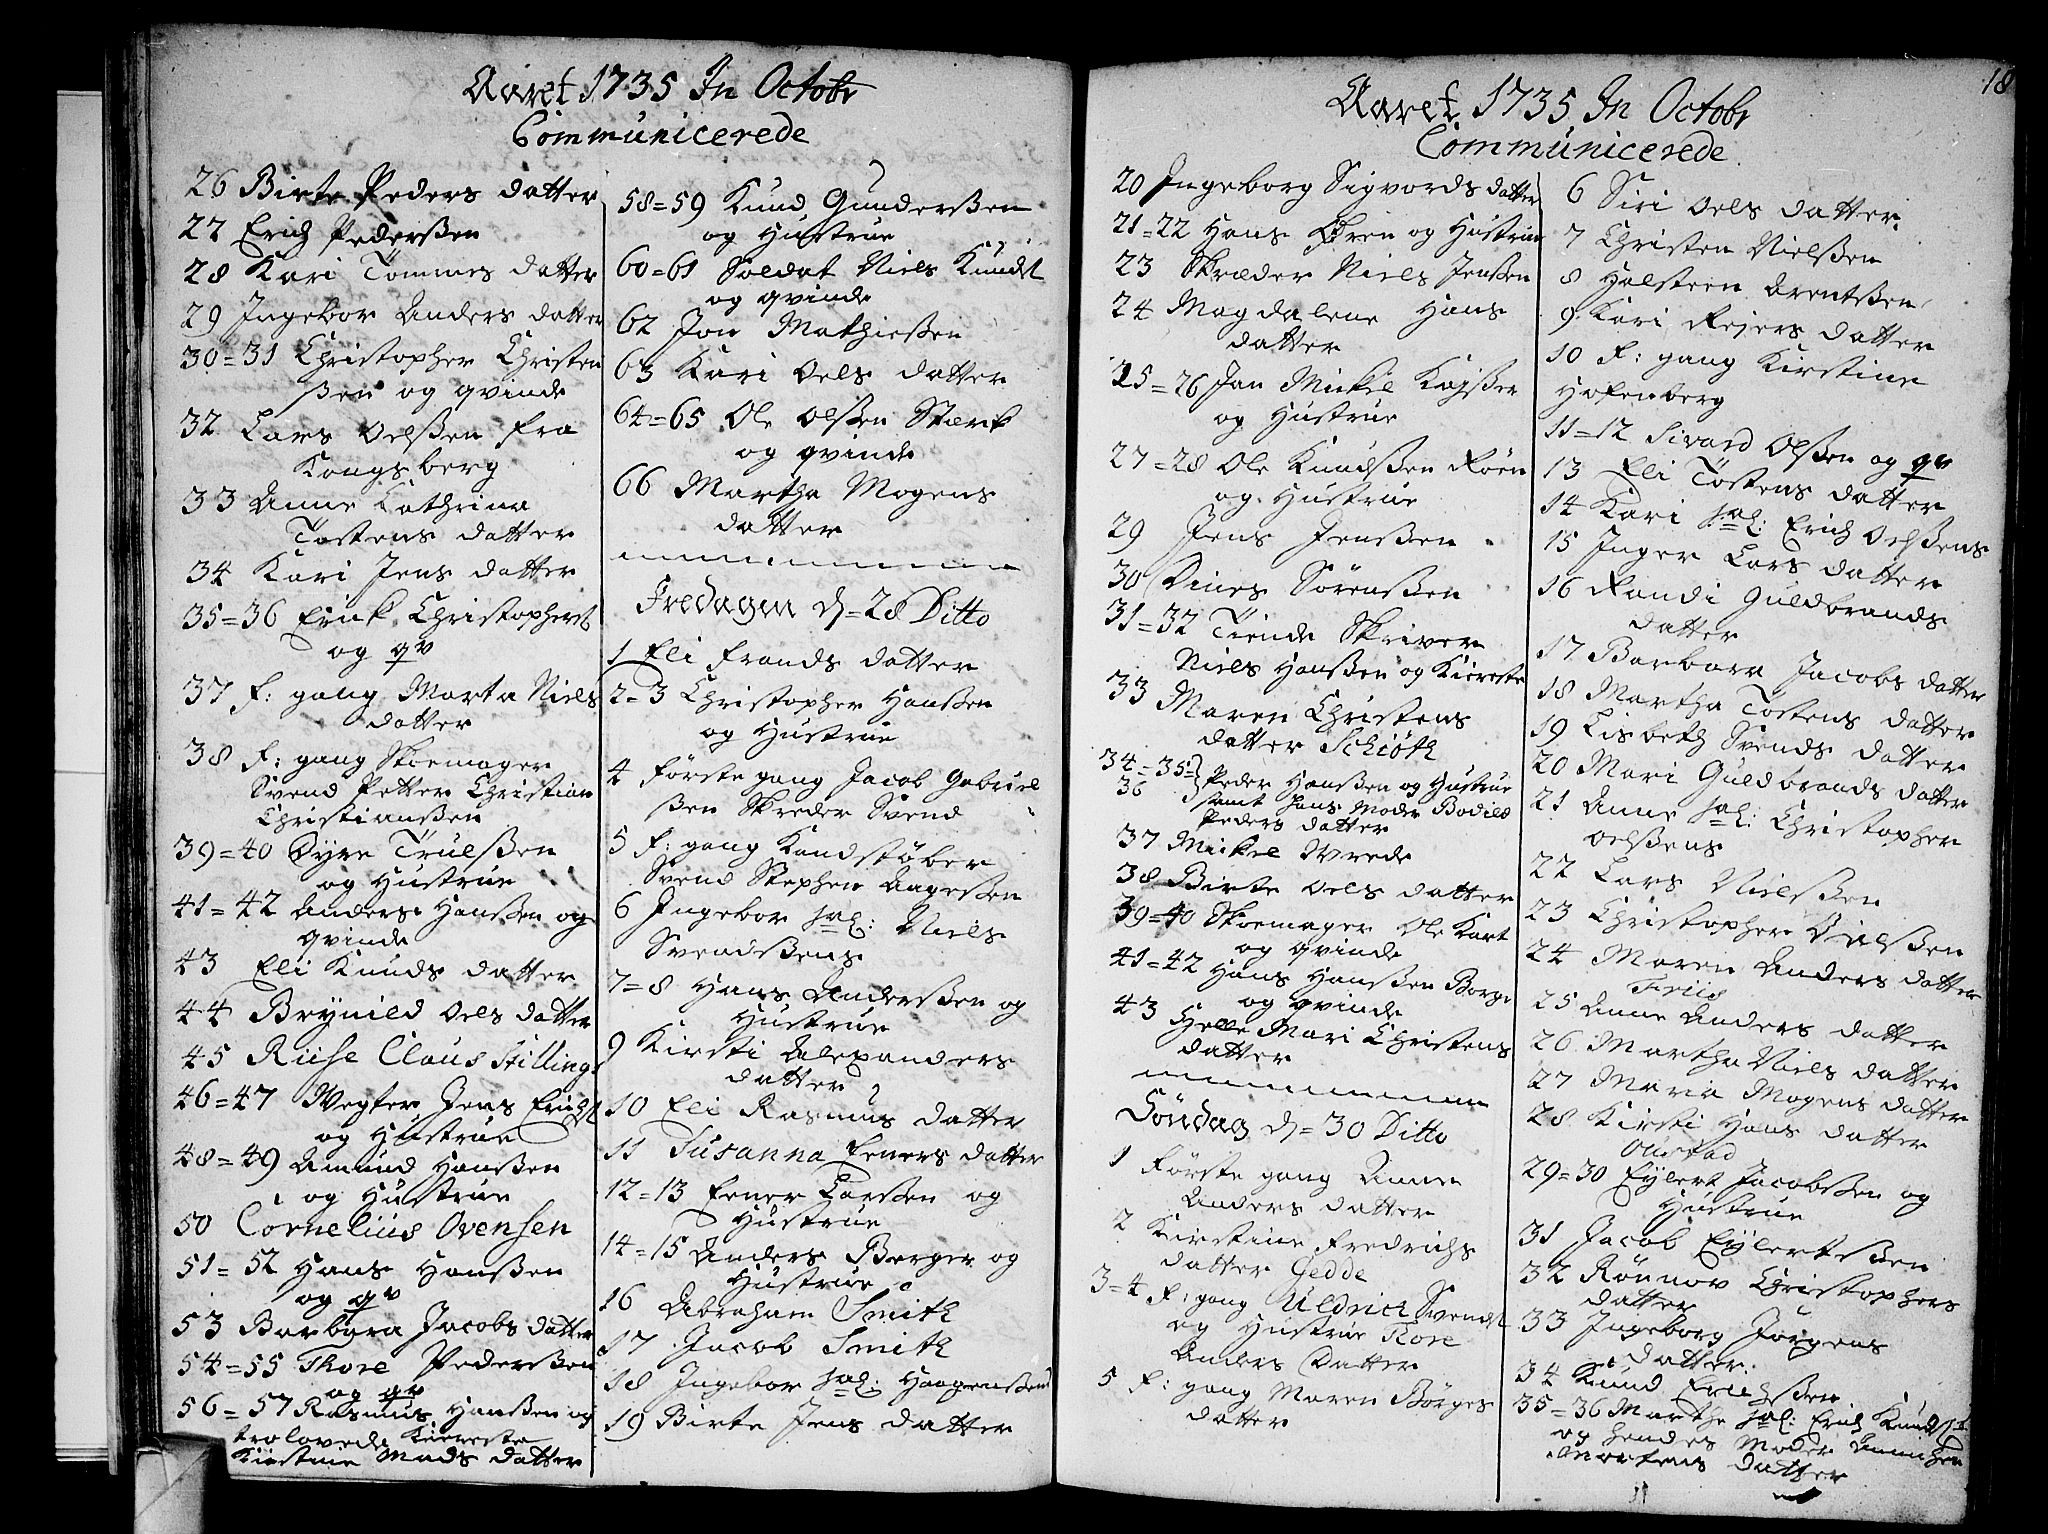 Aaret 1735 In Octobr
Communicerede
26 Birte Peders datter
27 Erich Pederßen
28 Kari Tommes datter
29 Ingebor Anders datter
30=31 Christopher Christen
ßen og qvinde
32 Lars Oelßen fra
Kongsberg
33 Anne Cathrina
Tostens datter
34 Kari Jens datter
35=36 Erick Christophers
og qv
37 f: gang Marta Niels
datter
38 f: gang Skoemager
Svend Petter Christian
Christianßen
39=40 Dyre Trulßen
og Hustrue
41=42 Anders Hanßen og
qvinde
43 Eli Knuds datter
44 Brynild Oels datter
45 Riise Claus Stillings
46=47 Wegter Jens Erichs
og Hustrue
48=49 Amund Hanßen
og Hustrue
50 Cornelius Ovensen
51=52 Hans Hanßen
og qv
53 Barbara Jacobs datter
54=55 Thore Pederßen
og qv
56=57 Rasmus Hanßen og
trolovede Kiereste
Kirstine Mads datter
58=59 Knud Gunderßen
og Hustrue
60=61 Soldat Niels Knuds
og qvinde
62 Jon Mathießen
63 Kari Oels datter
64=65 Ole Olßen Stærk
og qvinde
66 Martha Mogens
datter
Fredagen d=28 Ditto
1 Eli Frands datter
2=3 Christopher Hanßen
og Hustrue
4 förste gang Jacob Gabriel
ßen Skreder Svend
5 f: gang Kandstöber
Svend Stephen Aageßen
6 Ingebor sal: Niels
Svendßens
7=8 Hans Anderßen og
Hustrue
9 Kirsti Alexanders
datter
10 Eli Rasmus datter
11 Susanna Eeners datter
12=13 Eener Larßen og
Hustrue
14=15 Anders Berger og
Hustrue
16 Abraham Smith
17 Jacob Smith
18 Ingebor sal: Haagenßens
19 Birte Jens datter
18
Aaret 1735 In Octobr
Communicerede
20 Ingeborg Sigvords datter
21=22 Hans Ören og Hustrue
23 Skræder Niels Jenßen
24 Magdalene Hans
datter
25=26 Jan Mickel Kayßer
og Hustrue
27=28 Ole Knudßen Röen
og Hustrue
29 Jens Jenßen
30 Dines Sörenßen
31=32 Tiende Skriver
Niels Hanßen og Kiereste
33 Maren Christens
datter Schiöth
34=35= Peder Hanßen og Hustrue
36 samt hans Moder Bodild
Peders datter
37 Mickel Wrede
38 Birte Oels datter
39=40 Skoemager Ole Kart
og qvinde
41=42 Hans Hanßen Borge
og qvinde
43 Helle Mari Christens
datter
Söndag d=30 Ditto
1 Förste gang Anne
Anders datter
2 Kirstine Fredrichs
datter Gedde
3=4 f: gang Uldrich Svends
og Hustrue Tore
Anders Datter
5 f: gang Maren Börges
datter
6 Siri Oels datter
7 Christen Nielßen
8 Halsteen Arentßen
9 Kari Rejers datter
10 f: gang Kirstine
Hofenberg
11=12 Sivard Olßen og qv
13 Eli Töstens datter
14 Kari sal: Erich Oelßens
15 Inger Lars datter
16 Randi Guldbrands
datter
17 Barbara Jacobs datter
18 Martha Tostens datter
19 Lisbeth Svends datter
20 Mari Guldbrands datter
21 Anne sal: Christopher
Oelßens
22 Lars Nielßen
23 Christopher
24 Maren Anders datter
Friis
25 Anne Anders datter
26 Martha Niels datter
27 Maria Mogens datter
28 Kirsti Hans datter
29=30 Eylert Jacobßen og
Hustrue
31 Jacob Eylertßen
32 Rönnov Christophers
datter
33 Ingeborg Jörgens
datter
34 Knud Erichßen
35=36 Marthe sal: Erich Knuds
og hendes Moder
Mortens Datter